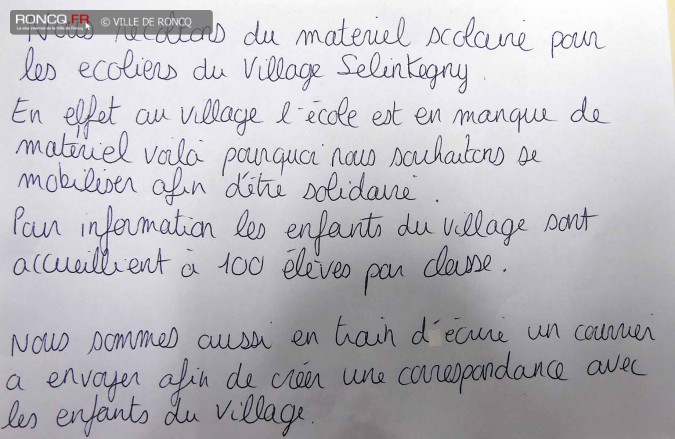 RONCQ.FR © VILLE DE RONCQ
Nous récoltons du materiel scolaire pour
les ecoliers du Village Selinkegny.
En effet au village l'école est en manque de
matériel voilà pourquoi nous souhaitons se
mobiliser afin d'être solidaire.
Pour information les enfants du village sont
accueillient à 100 élèves par classe.
Nous sommes aussi en train d'écrire un courrier
a envoyer afin de créer une correspondance avec
les enfants du village.